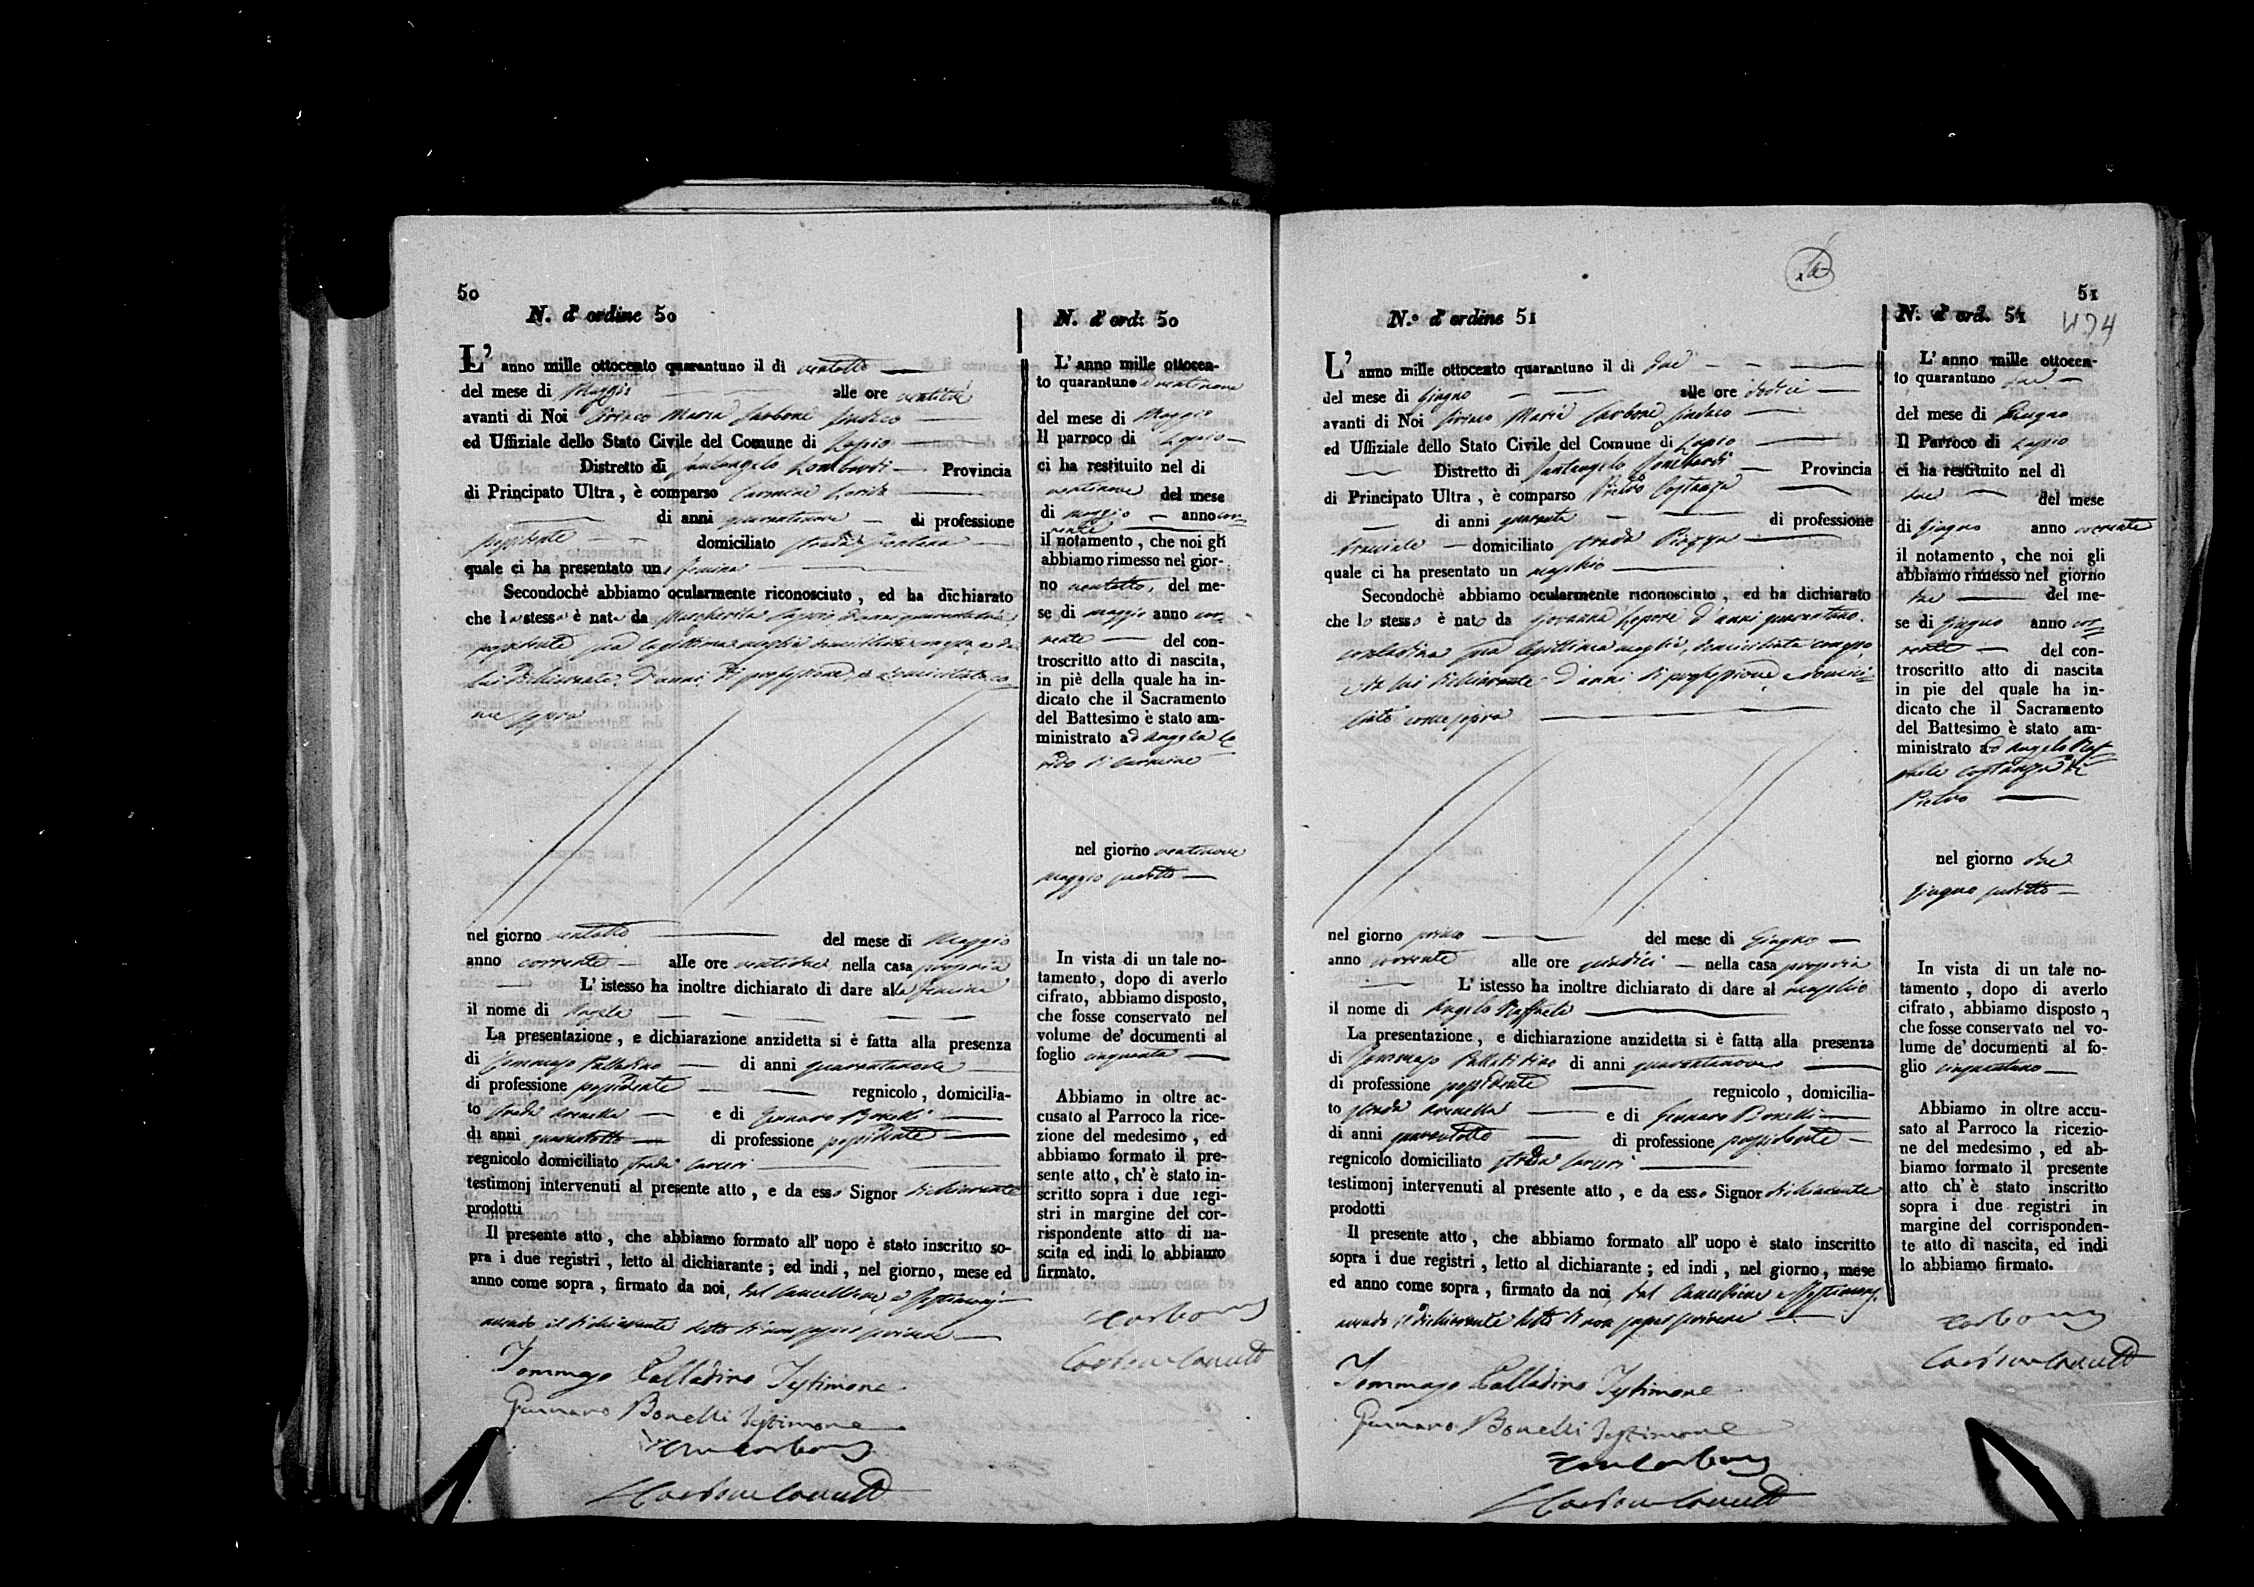 50
N. d' ordine 50
L' anno mille ottocento quarantuno il di ventotto
del mese di Maggio alle ore ventidue
avanti di Noi Ciriaco Maria Carbone Sindaco
ed Uffiziale dello Stato Civile del Comune di Lapio
Distretto di Santangelo Lombardi Provincia
di Principato Ultra, è comparso Carmine
di anni quarantanove di professione
possidente domiciliato strada Fontana
quale ci ha presentato una femina
Secondochè abbiamo ocularmente riconosciuto, ed ha dichiarato
che la stessa è nata da d'anni
possidente sua legittima moglie domiciliata con esso, e da
lui dichiarante d'anni di professione, e domiciliato co-
me sopra
nel giorno ventotto del mese di Maggio
anno corrente alle ore ventidue nella casa propria
L' istesso ha inoltre dichiarato di dare alla femina
il nome di Angela
La presentazione, e dichiarazione anzidetta si è fatta alla presenza
di Tommaso Palladino di anni quarantanove
di professione possidente regnicolo, domicilia-
to strada Arenella e di Gennaro Bonelli
di anni quarantotto di professione possidente
regnicolo domiciliato strada Carceri
testimonj intervenuti al presente atto, e da esso Signor dichiarante
prodotti
Il presente atto, che abbiamo formato all' uopo è stato inscritto so-
pra i due registri, letto al dichiarante; ed indi, nel giorno, mese ed
anno come sopra, firmato da noi, dal Cancelliere, e testimonj
avendo il dichiarante detto di non sapere scrivere
Tommaso Palladino Testimone
Gennaro Bonelli Testimone
N. d' ord: 50
L' anno mille ottocen-
to quarantuno ventinove
del mese di Maggio
Il parroco di Lapio
ci ha restituito nel di
ventinove del mese
di maggio anno cor-
rente
il notamento, che noi gli
abbiamo rimesso nel gior-
no ventotto, del me-
se di maggio anno cor-
rente del con-
troscritto atto di nascita,
in piè della quale ha in-
dicato che il Sacramento
del Battesimo è stato am-
ministrato ad Angela
di Carmine
nel giorno ventinove
maggio sudetto
In vista di un tale no-
tamento, dopo di averlo
cifrato, abbiamo disposto,
che fosse conservato nel
volume de' documenti al
foglio cinquanta
Abbiamo in oltre ac-
cusato al Parroco la rice-
zione del medesimo, ed
abbiamo formato il pre-
sente atto, ch' è stato in-
scritto sopra i due regi-
stri in margine del cor-
rispondente atto di na-
scita ed indi lo abbiamo
firmato.
Carbone
51
N.º d' ordine 51
L' anno mille ottocento quarantuno il di due
del mese di Giugno alle ore dodici
avanti di Noi Ciriaco Maria Carbone Sindaco
ed Uffiziale dello Stato Civile del Comune di Lapio
Distretto di Santangelo Lombardi Provincia
di Principato Ultra, è comparso Pietro Costanza
di anni quaranta di professione
bracciale domiciliato strada Piazza
quale ci ha presentato un maschio
Secondochè abbiamo ocularmente riconosciuto, ed ha dichiarato
che lo stesso è nato da Giovanna Lepore d'anni quarantuno
contadina sua legittima moglie, domiciliata con esso,
e da lui dichiarante d'anni di professione e domici-
liato come sopra
nel giorno primo del mese di Giugno
anno corrente alle ore quindici nella casa propria
L' istesso ha inoltre dichiarato di dare al maschio
il nome di Angelo Raffaele
La presentazione, e dichiarazione anzidetta si è fatta alla presenza
di Tommaso Palladino di anni quarantanove
di professione possidente regnicolo, domicilia-
to strada Arenella e di Gennaro Bonelli
di anni quarantotto di professione possidente
regnicolo domiciliato strada Carceri
testimonj intervenuti al presente atto, e da esso Signor dichiarante
prodotti
Il presente atto, che abbiamo formato all' uopo è stato inscritto
sopra i due registri, letto al dichiarante; ed indi, nel giorno, mese
ed anno come sopra, firmato da noi, dal Cancelliere e testimonj
avendo il dichiarante detto di non sapere scrivere
Tommaso Palladino Testimone
Gennaro Bonelli Testimone
N. d' ord. 51
L' anno mille ottocen-
to quarantuno due
del mese di Giugno
Il Parroco di Lapio
ci ha restituito nel dì
due del mese
di Giugno anno corrente
il notamento, che noi gli
abbiamo rimesso nel giorno
due del me-
se di Giugno anno cor-
rente del con-
troscritto atto di nascita
in pie del quale ha in-
dicato che il Sacramento
del Battesimo è stato am-
ministrato ad Angelo Raf-
faele Costanza di
Pietro
nel giorno due
Giugno sudetto
In vista di un tale no-
tamento, dopo di averlo
cifrato, abbiamo disposto,
che fosse conservato nel vo-
lume de' documenti al fo-
glio cinquantuno
Abbiamo in oltre accu-
sato al Parroco la ricezio-
ne del medesimo, ed ab-
biamo formato il presente
atto ch' è stato inscritto
sopra i due registri in
margine del corrisponden-
te atto di nascita, ed indi
lo abbiamo firmato.
Carbone